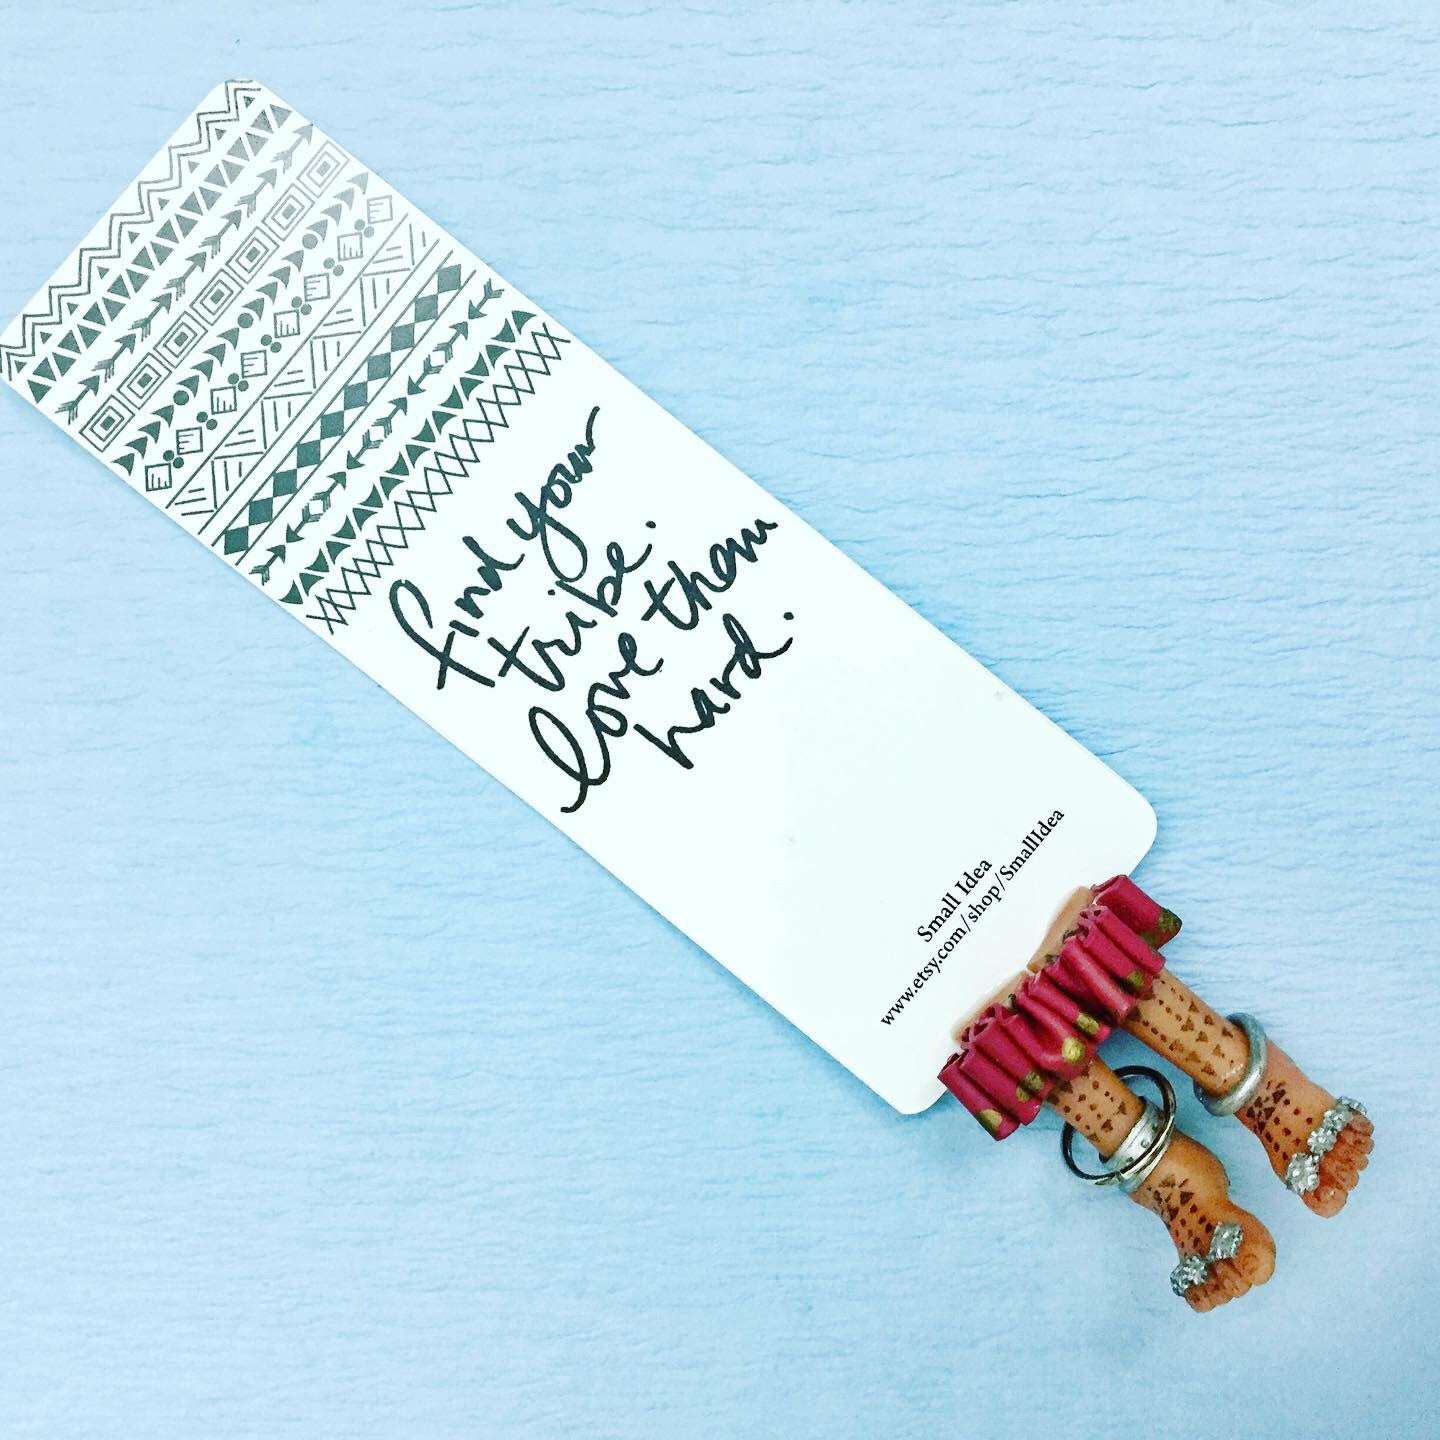 find your
tribe.
love them
hard.
Small Idea
www.etsy.com/shop/SmallIdea